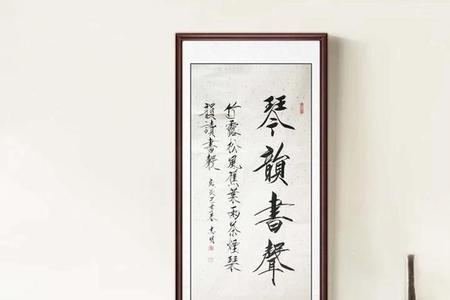 琴韻書聲
竹露松風蕉葉雨茶煙琴
韻讀書聲